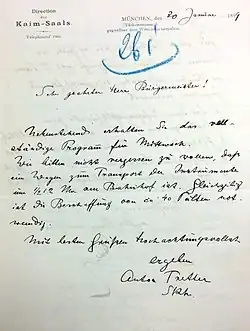 Direction
des
Kaim-Saals.
MÜNCHEN, den 20 Januar 19
261
Sehr geehrter Herr Bürgermeister!
Nebenstehend erhalten Sie das voll
ständige Program für Mittwoch.
Wir bitten nicht vergessen zu wollen, daß
ein Wagen zum Transport der Instrumente
um 1/2 12 Uhr am Bahnhof ist. Gleichzeitig
ist die Beschaffung von ca 40 Pulten not
wendig.
Mit besten Grüßen hochachtungsvollst
ergeben
Anton